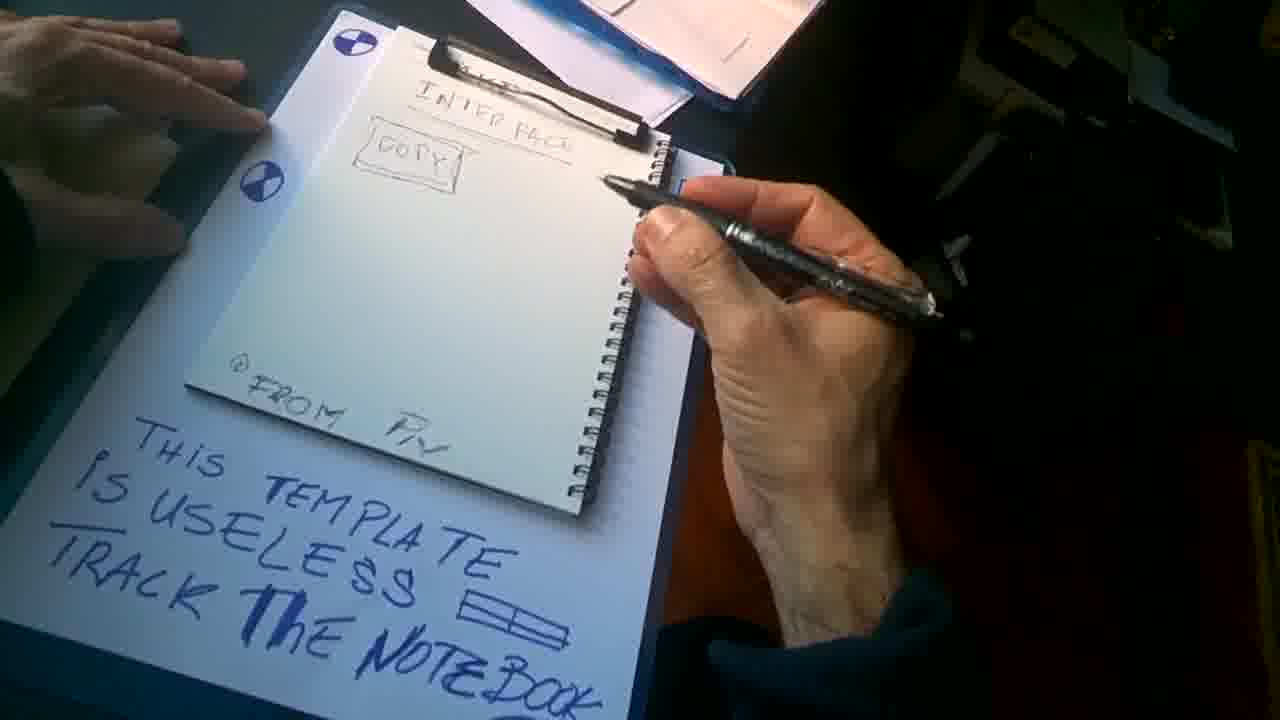 INTERFACE
COPY
FROM
THIS TEMPLATE
IS USELESS
TRACK THE NOTEBOOK